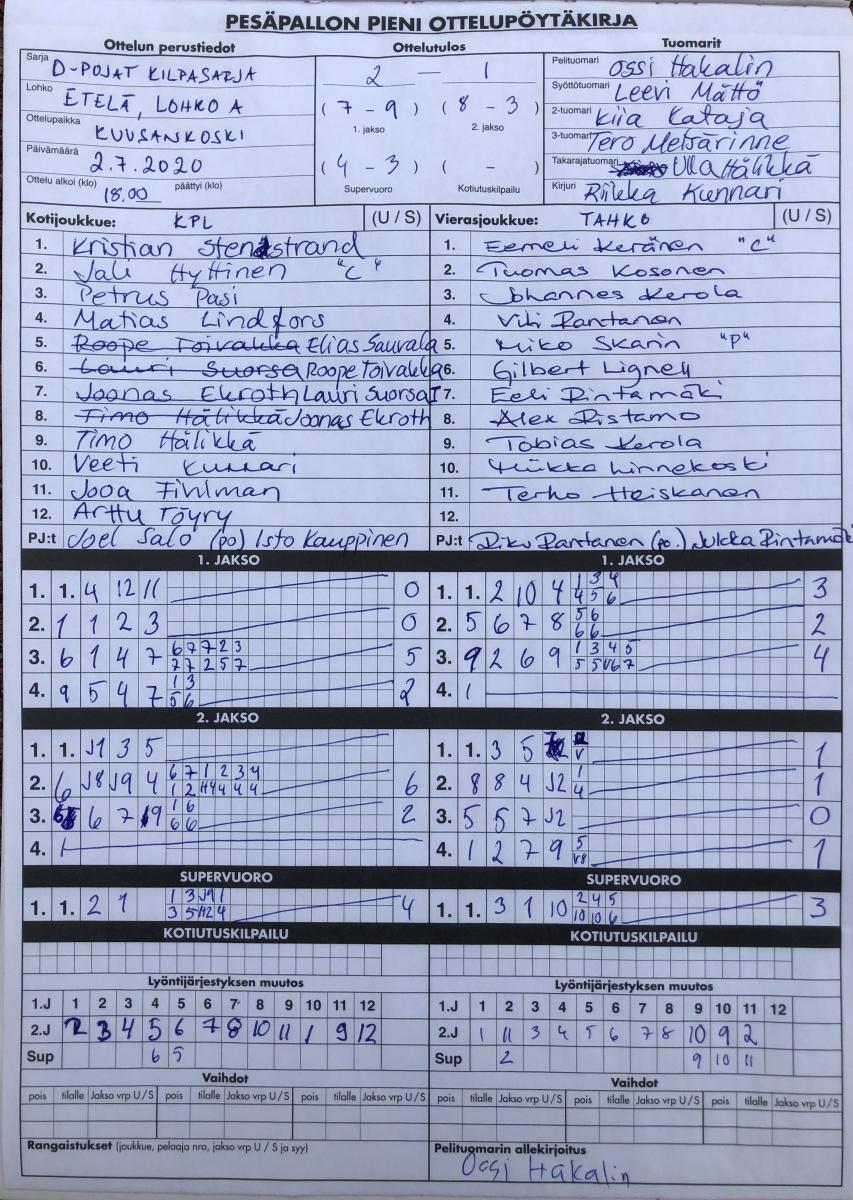 PESÄPALLON PIENI OTTELUPÖYTÄKIRJA
Ottelun perustiedot
Sarja D-POJAT KILPASARJA
Lohko ETELÄ, LOHKO A
Ottelupaikka KUUSANKOSKI
Päivämäärä 2.7.2020
Ottelu alkoi (klo) 18.00 päättyi (klo)
Ottelutulos
2 — 1
(7 - 9) (8 - 3)
1. jakso 2. jakso
(4 - 3) ( - )
Supervuoro Kotiutuskilpailu
Tuomarit
Pelituomari Ossi Hakalin
Syöttötuomari Leevi Mättö
2-tuomari Kiia Kataja
3-tuomari Tero Metsärinne
Takarajatuomari Ulla Hälikkä
Kirjuri Riikka Kunnari
Kotijoukkue: KPL (U / S)
1. Kristian Stenstrand
2. Jali Hyttinen "C"
3. Petrus Pasi
4. Matias Lindfors
5. Roope Toivakka Elias Sauvala
6. Lauri Suorsa Roope Toivakka
7. Joonas Ekroth Lauri Suorsa
8. Timo Hälikkä Joonas Ekroth
9. Timo Hälikkä
10. Veeti Kunnari
11. Jooa Fihlman
12. Arttu Töyry
PJ:t Joel Salo (po) Isto Kauppinen
Vierasjoukkue: TAHKO (U / S)
1. Eemeli Keränen "C"
2. Tuomas Kosonen
3. Johannes Kerola
4. Vili Rantanen
5. Miko Skarin "P"
6. Gilbert Lignell
7. Eeli Rintamäki
8. Alex Ristamo
9. Tobias Kerola
10. Miikka Linnekoski
11. Terho Heiskanen
12.
PJ:t Riku Rantanen (po.) Jukka Rintamäki
1. JAKSO
1. 1. 4 12 11 0
2. 1 1 2 3 0
3. 6 1 4 7 6 7 7 2 3 5
7 7 2 5 7
4. 9 5 4 7 1 3 2
5 6
1. JAKSO
1. 1. 2 10 4 1 3 4 3
4 5 6
2. 5 6 7 8 5 6 2
6 6
3. 9 2 6 9 1 3 4 5 4
5 5 V6 7
4. 1
2. JAKSO
1. 1. J1 3 5
2. 6 J8 J9 4 6 7 1 2 3 4 6
1 2 H4 4 4 4
3. 6 7 9 1 6 2
6 6
4. 1
2. JAKSO
1. 1. 3 5 1
V
2. 8 8 4 J2 1 1
4
3. 5 5 7 J2 0
4. 1 2 7 9 5 1
V8
SUPERVUORO
1. 1. 2 1 1 3 J9 1 4
3 5 H2 4
SUPERVUORO
1. 1. 3 1 10 2 4 5 3
10 10 6
KOTIUTUSKILPAILU
KOTIUTUSKILPAILU
Lyöntijärjestyksen muutos
1.J 1 2 3 4 5 6 7 8 9 10 11 12
2.J 2 3 4 5 6 7 8 10 11 1 9 12
Sup 6 5
Lyöntijärjestyksen muutos
1.J 1 2 3 4 5 6 7 8 9 10 11 12
2.J 1 11 3 4 5 6 7 8 10 9 2
Sup 2 9 10 11
Vaihdot
pois tilalle Jakso vrp U / S pois tilalle Jakso vrp U / S pois tilalle Jakso vrp U / S
Vaihdot
pois tilalle Jakso vrp U / S pois tilalle Jakso vrp U / S pois tilalle Jakso vrp U / S
Rangaistukset (joukkue, pelaaja nro, jakso vrp U / S ja syy)
Pelituomarin allekirjoitus
Ossi Hakalin